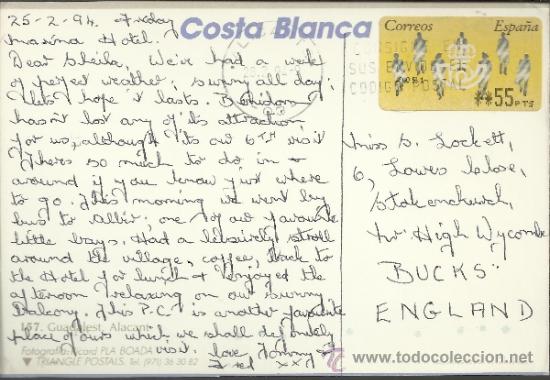 25-2-94. Friday
Costa Blanca
Maxima Hotel.
Dear Sheila, We've had a week
of perfect weather, sunny all day,
let's hope it lasts. Benidorm
hasn't lost any of its attraction
for us, although its our 6TH visit
Theres so much to do in &
around if you know just where
to go. This morning we went by
bus to Albir, one of our favourite
little bays. Had a leisurely stroll
around the village, coffee, back to
the Hotel for lunch & enjoyed the
afternoon relaxing on our sunny
Balcony. This P.C. is another favourite
place of ours which we shall definitely
visit. love Tommy &
xxx
157. Guadalest. Alacant
Fotografía: Ricard PLA BOADA
TRIANGLE POSTALS. Tel. (971) 36 30 82
Correos España
**55 PTS
CONSIGNE E
SUS ENVIOS E
CODIGO POSTAL
Miss S. Lockett,
6, Lowes Close,
Stokenchurch,
Nr High Wycombe
BUCKS
ENGLAND
www.todocoleccion.net